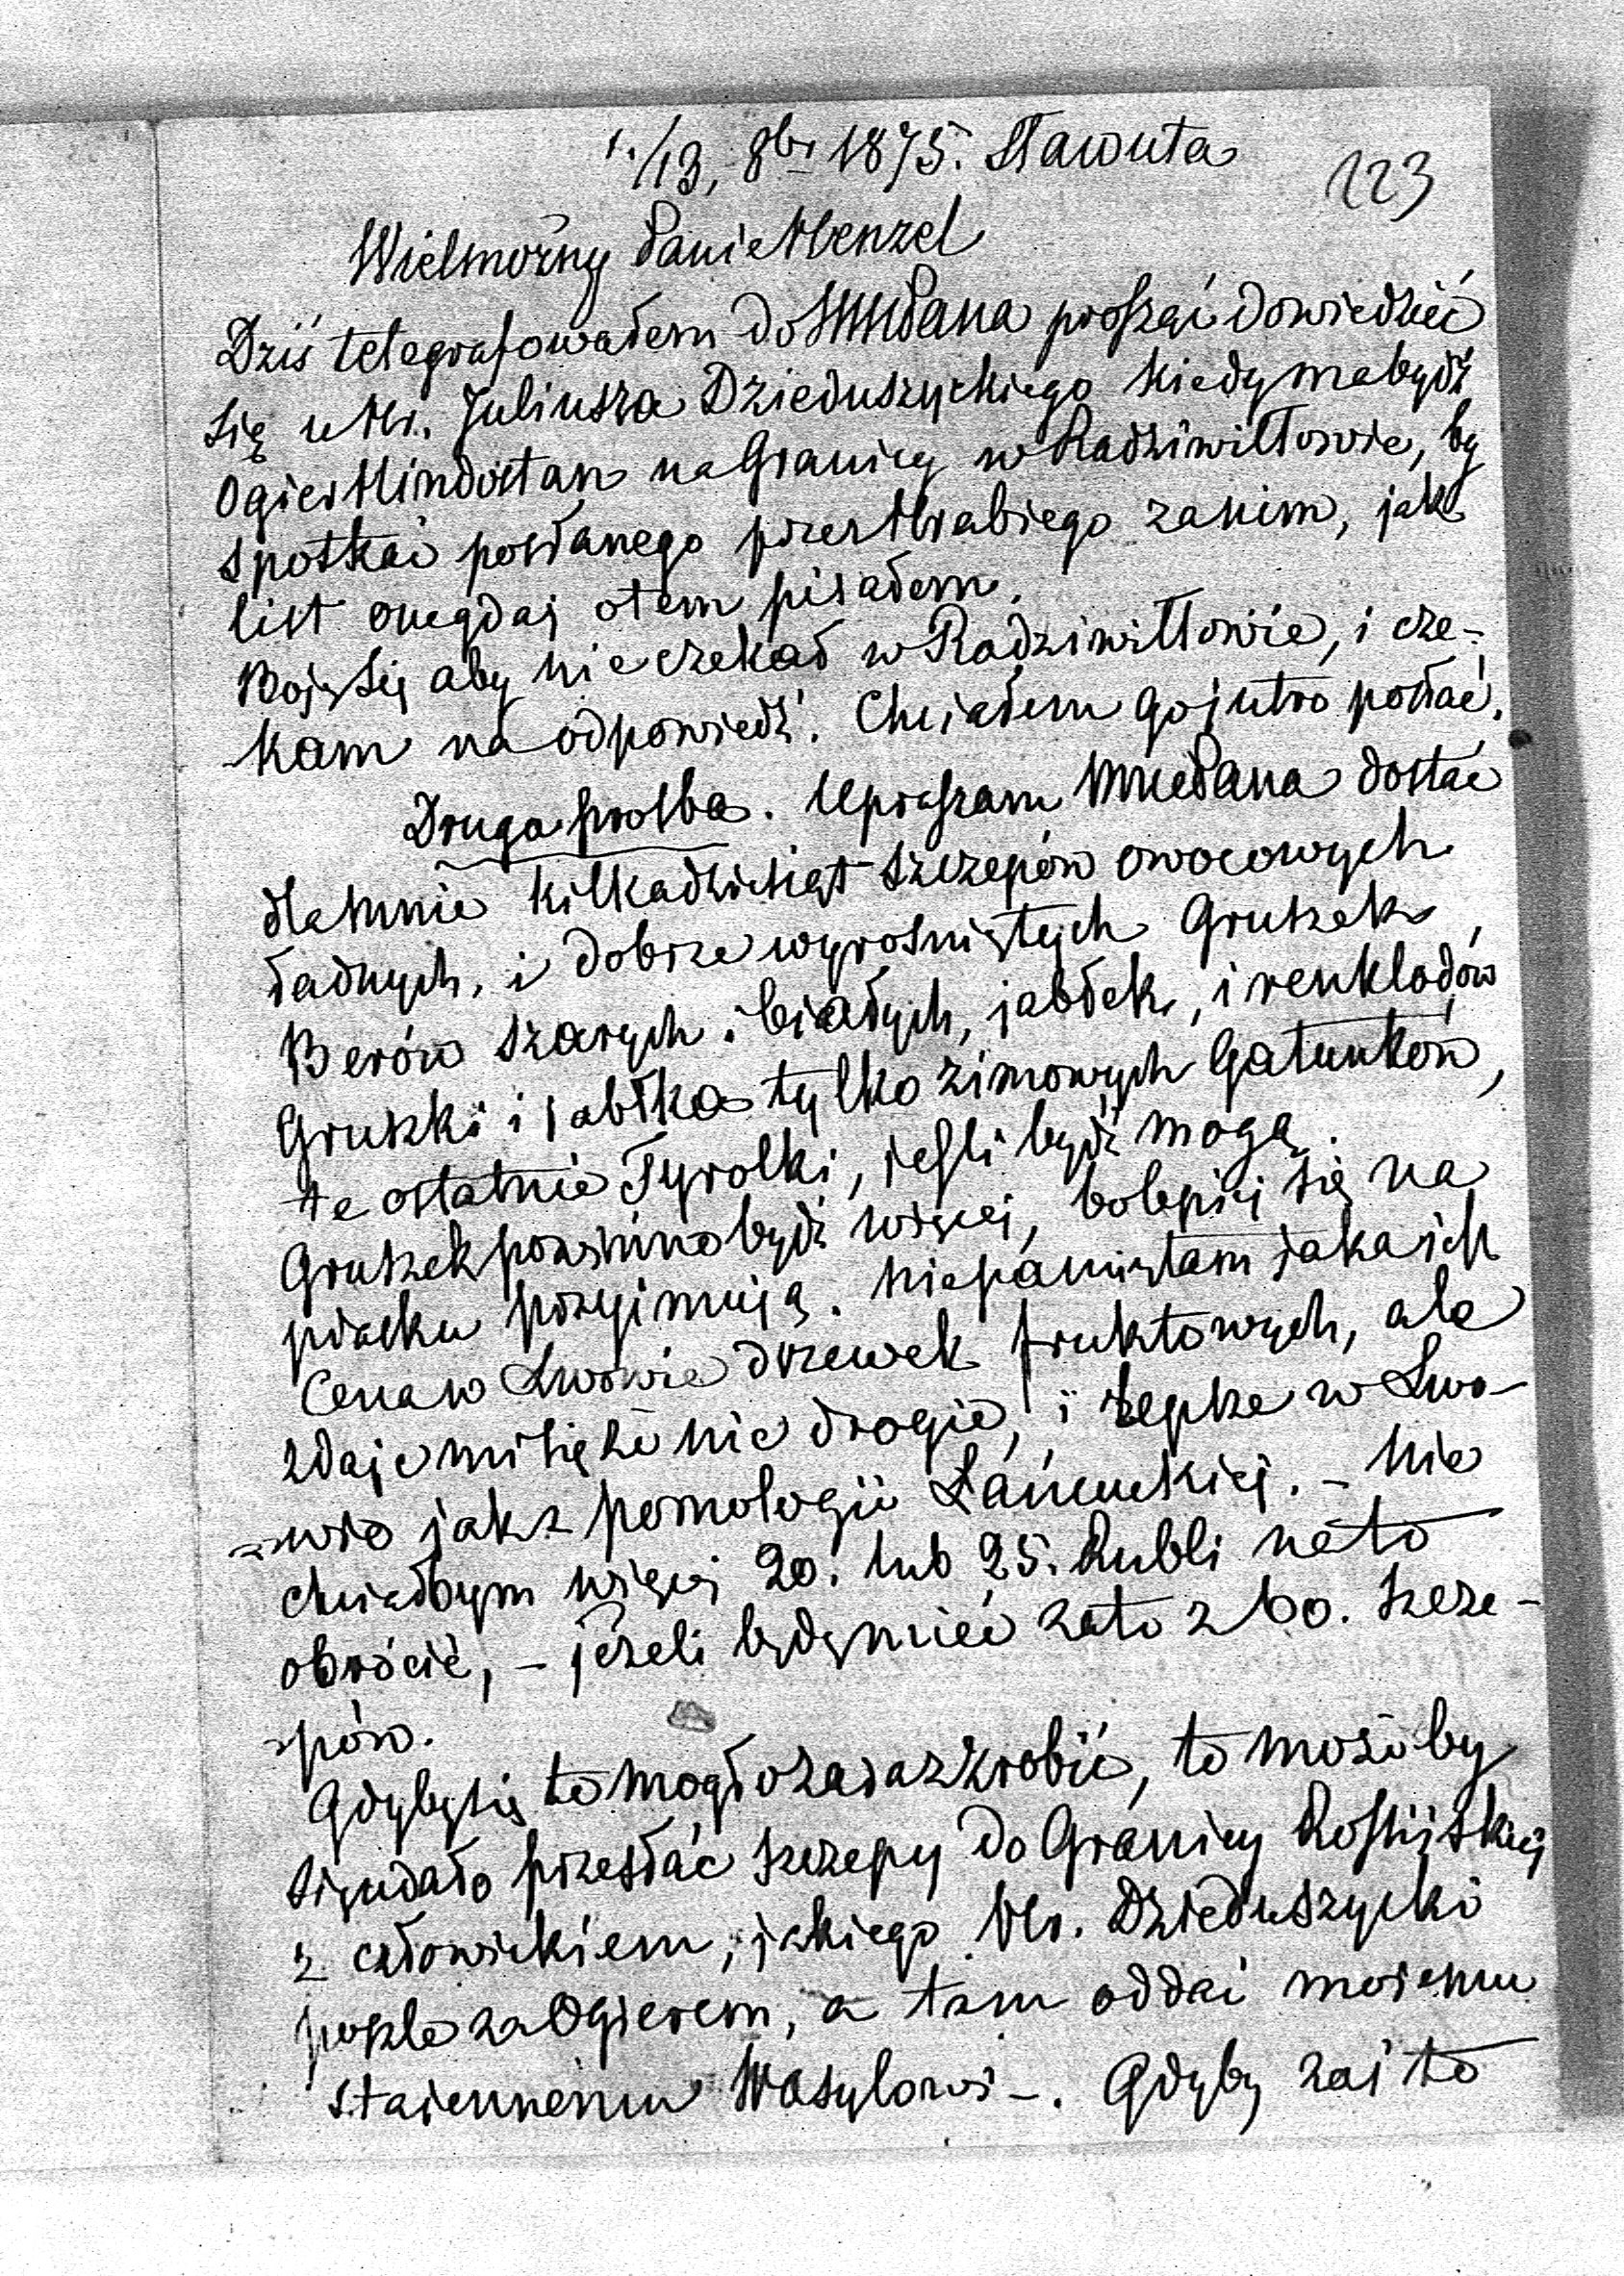 1./13, 8br 1875. Sławuta
123
Wielmożny Panie Menzel
Dziś telegrafowałem do WWPana prosząc dowiedzieć
się u Hr. Juliusza Dzieduszyckiego kiedy ma bydź
Ogier Hindostan na Granicy w Radziwiłłowie, by
spotkać posłanego przez Hrabiego zanim, jak
list onegdaj otem pisałem.
Boję się aby nie czekał w Radziwiłłowie, i cze-
kam na odpowiedź. Chciałem go jutro posłać.
Druga prosba. Upraszam WWPana dostać
dla mnie kilkadziesiąt szczepów owocowych
ładnych, i dobrze wyrosniętych Gruszek,
Berów szarych i białych, jabłek, i renklodów
Gruszki i jabłka tylko zimowych Gatunków,
te ostatnie Tyrolki, jeśli bydź mogą.
Gruszek powinno bydź więcej, bo lepiej się na
piasku przyjmują. Niepamiętam jaka ich
Cena w Lwowie drzewek fruktowych, ale
zdaje mi się że nie drogie, i lepsze w Lwo-
wie jak z pomologii Łańcuckiej. – Nie
chciałbym więcej 20. lub 25. Rubli na to
obrócić, – jeżeli będę mieć zato z 60. szcze-
pów.
Gdyby się to mogło zaraz zrobić, to może by
się udało przesłać szczepy do Granicy Rossijskiej
z człowiekiem, jakiego Hr. Dzieduszycki
poszle za Ogierem, a tam oddać mojemu
stajennemu Wasylowi –. Gdyby zaś to